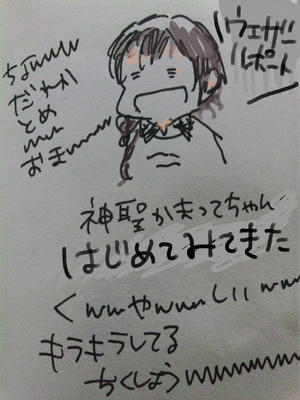 ウェザー
リポート
ちょwww
だれか
とめ
ww
おまwww
神聖かまってちゃん
はじめてみてきた
くwwやwwしいww
キラキラしてる
ちくしょうwwwwww